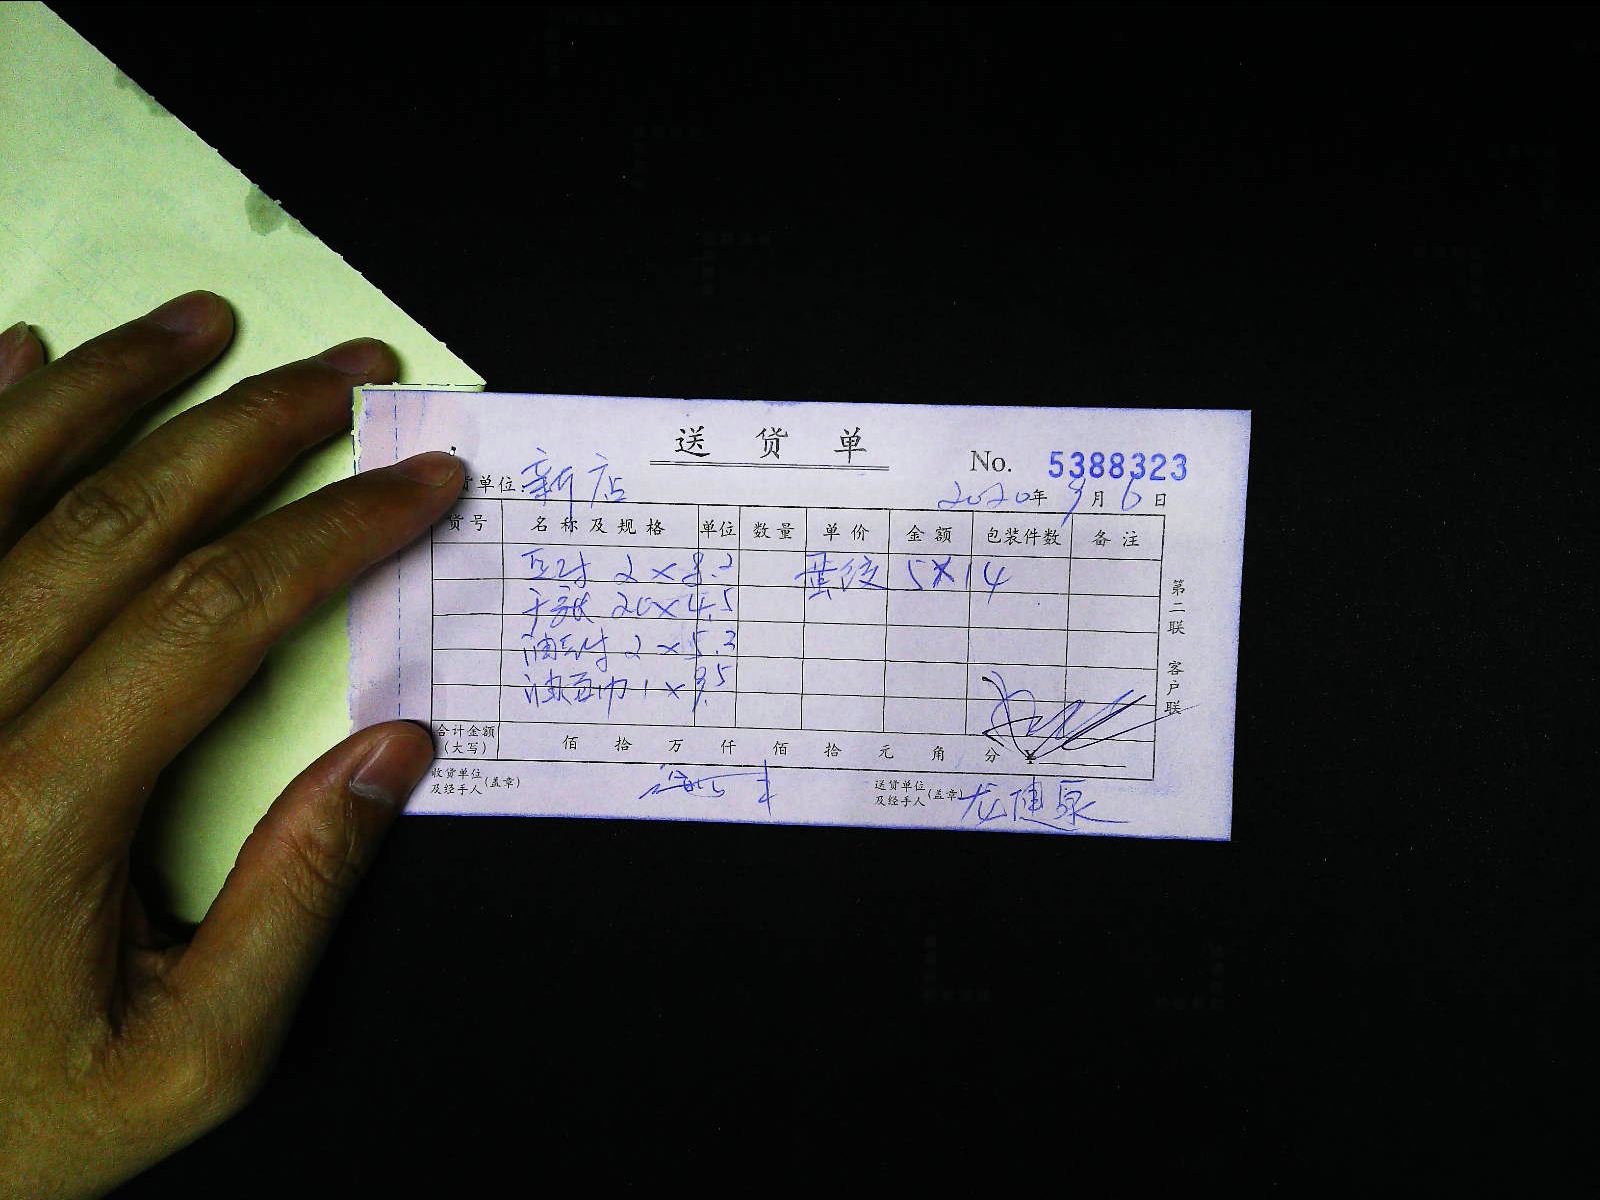 送货单
No. 5388323
货单位：新店
2020年9月6日
货号 名称及规格 单位 数量 单价 金额 包装件数 备注
2×8.2 5×14
千张 20×4.5
2×5.2
1×9.5
第二联 客户联
合计金额（大写） 佰 拾 万 仟 佰 拾 元 角 分 ¥
收货单位及经手人（盖章）
送货单位及经手人（盖章） 龙健泉